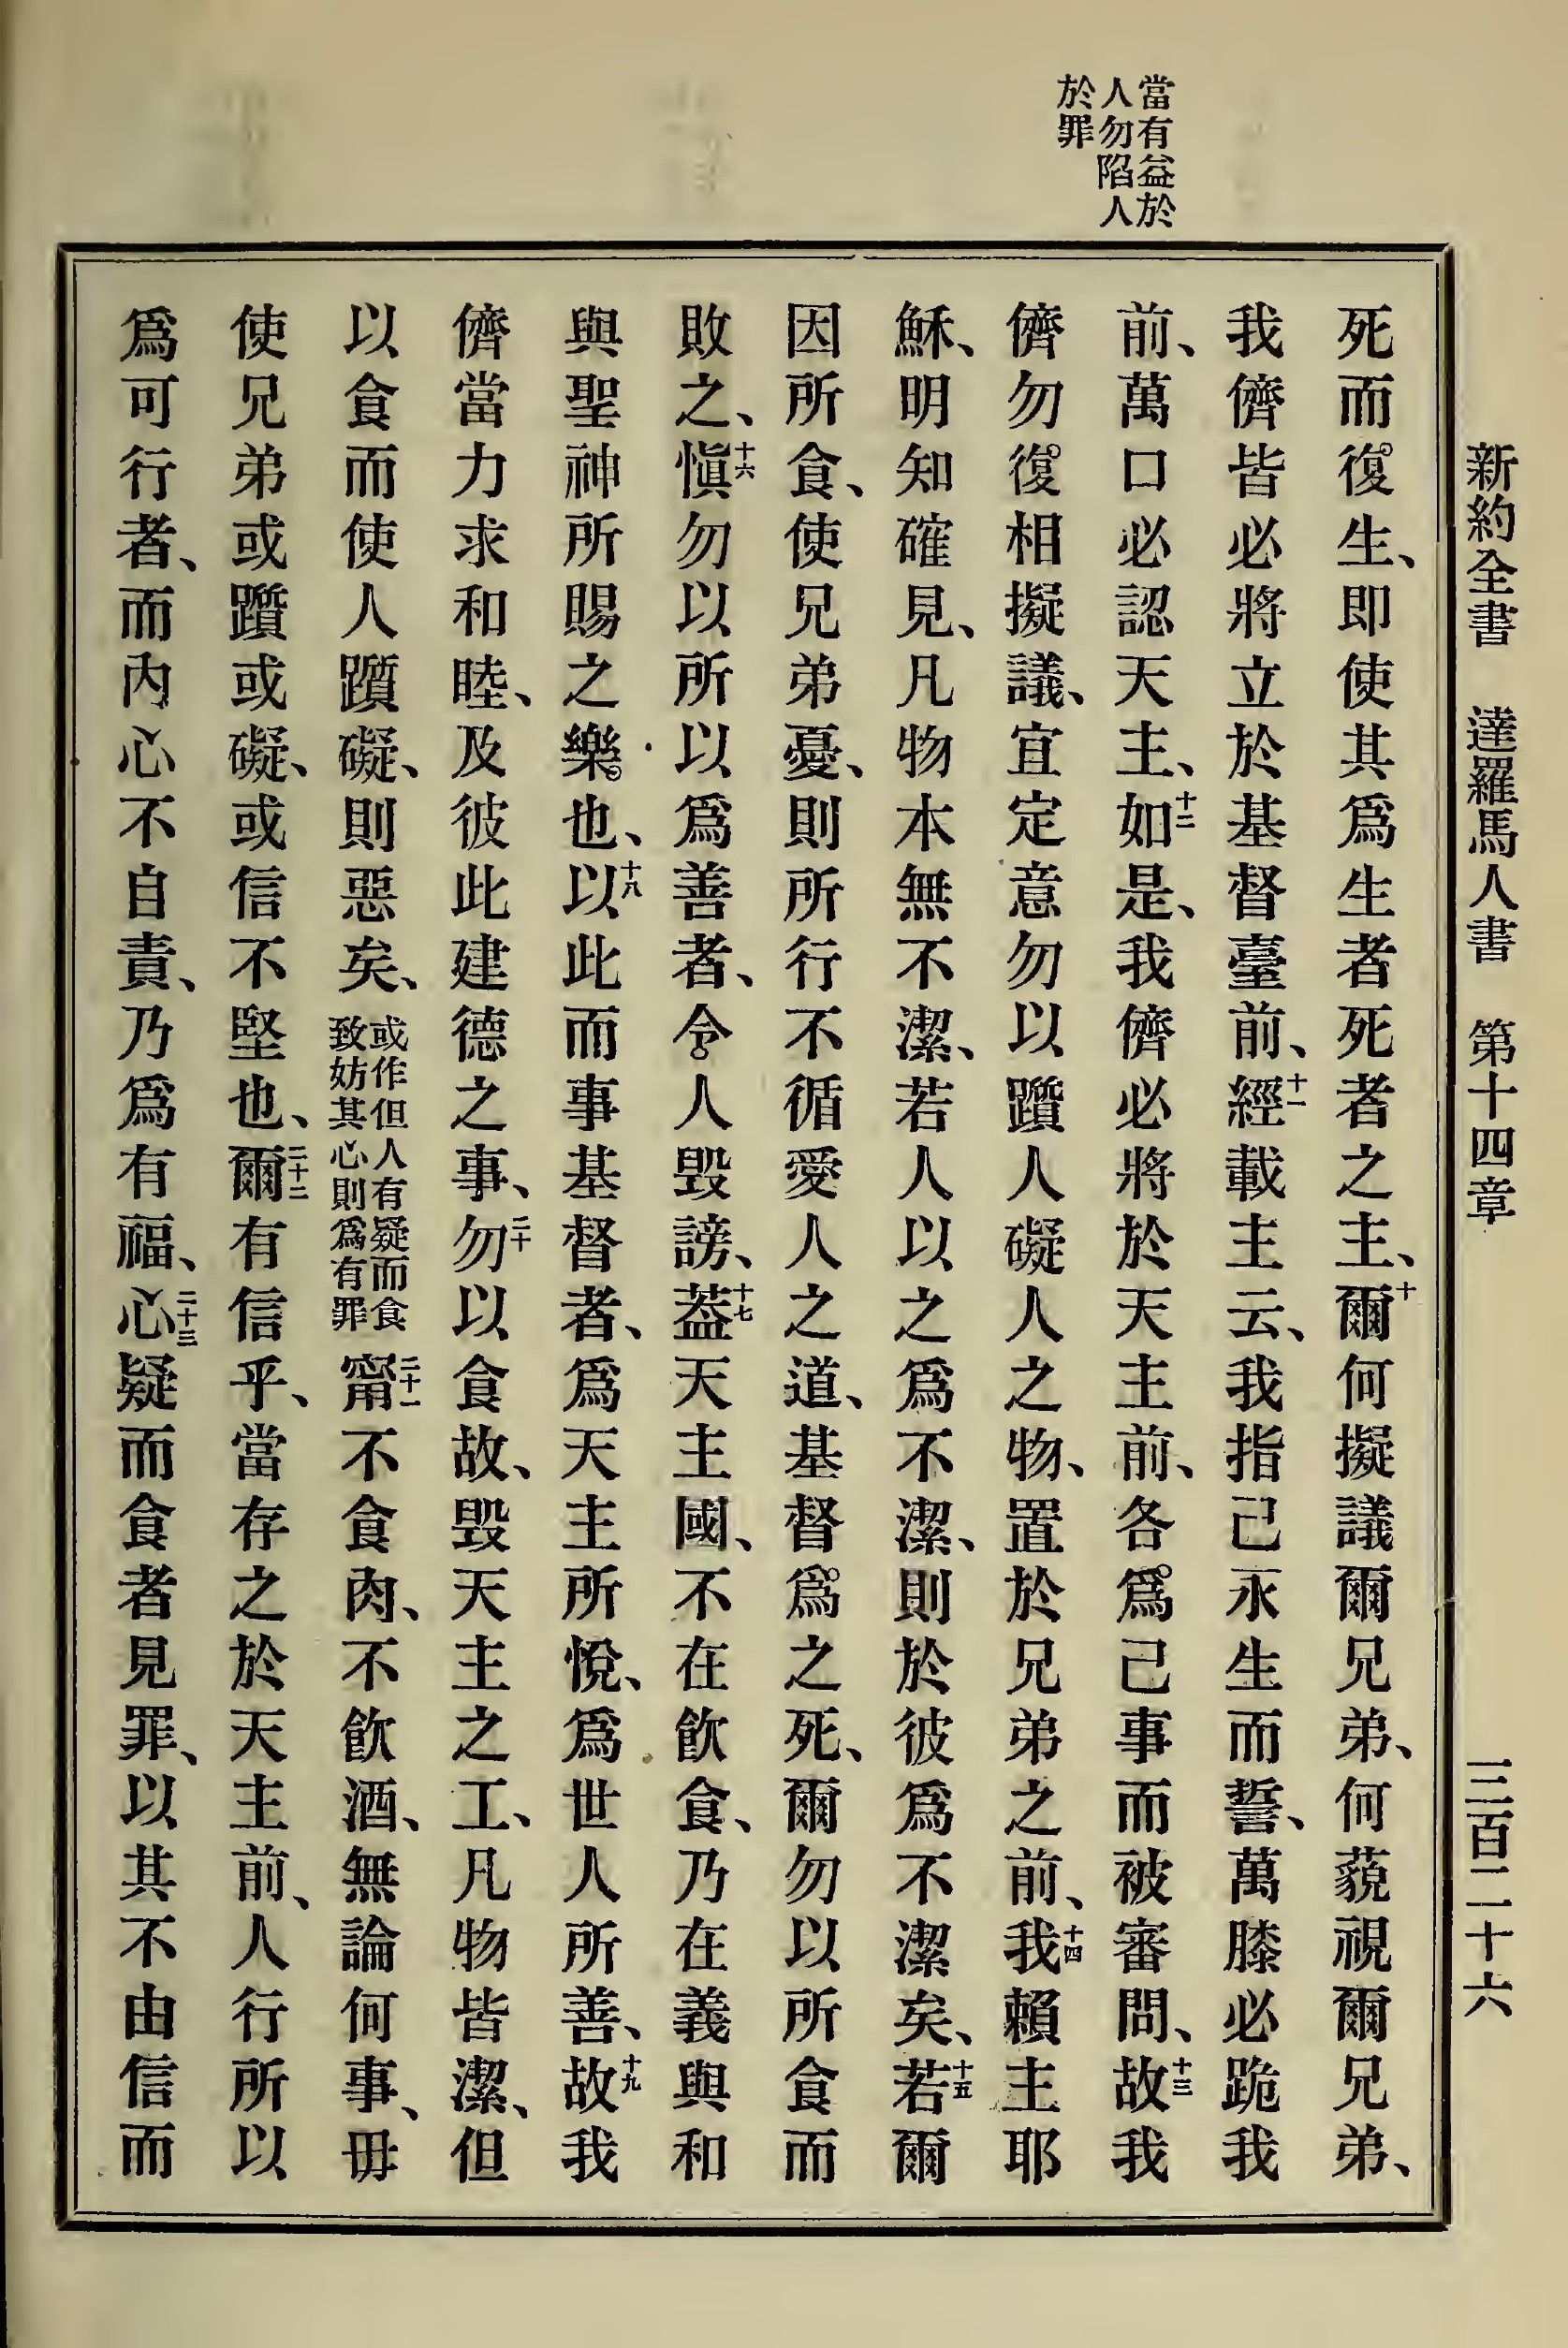 新約全書 達羅馬人書 第十四章 三百二十六
當有益於
人勿陷人
於罪
死而復生、卽使其爲生者死者之主、十爾何擬議爾兄弟、何藐視爾兄弟、
我儕皆必將立於基督臺前、十一經載主云、我指己永生而誓、萬膝必跪我
前、萬口必認天主、十二如是、我儕必將於天主前、各爲己事而被審問、十三故我
儕勿復相擬議、宜定意勿以躓人礙人之物、置於兄弟之前、十四我賴主耶
穌、明知確見、凡物本無不潔、若人以之爲不潔、則於彼爲不潔矣、十五若爾
因所食、使兄弟憂、則所行不循愛人之道、基督爲之死、爾勿以所食而
敗之、十六愼勿以所以爲善者、令人毀謗、十七蓋天主國、不在飮食、乃在義與和
與聖神所賜之樂也、十八以此而事基督者、爲天主所悅、爲世人所善、十九故我
儕當力求和睦、及彼此建德之事、二十勿以食故、毀天主之工、凡物皆潔、但
以食而使人躓礙、則惡矣、或作但人有疑而食致妨其心則爲有罪二十一甯不食肉、不飮酒、無論何事、毋
使兄弟或躓或礙、或信不堅也、二十二爾有信乎、當存之於天主前、人行所以
爲可行者、而內心不自責、乃爲有福、二十三心疑而食者見罪、以其不由信而